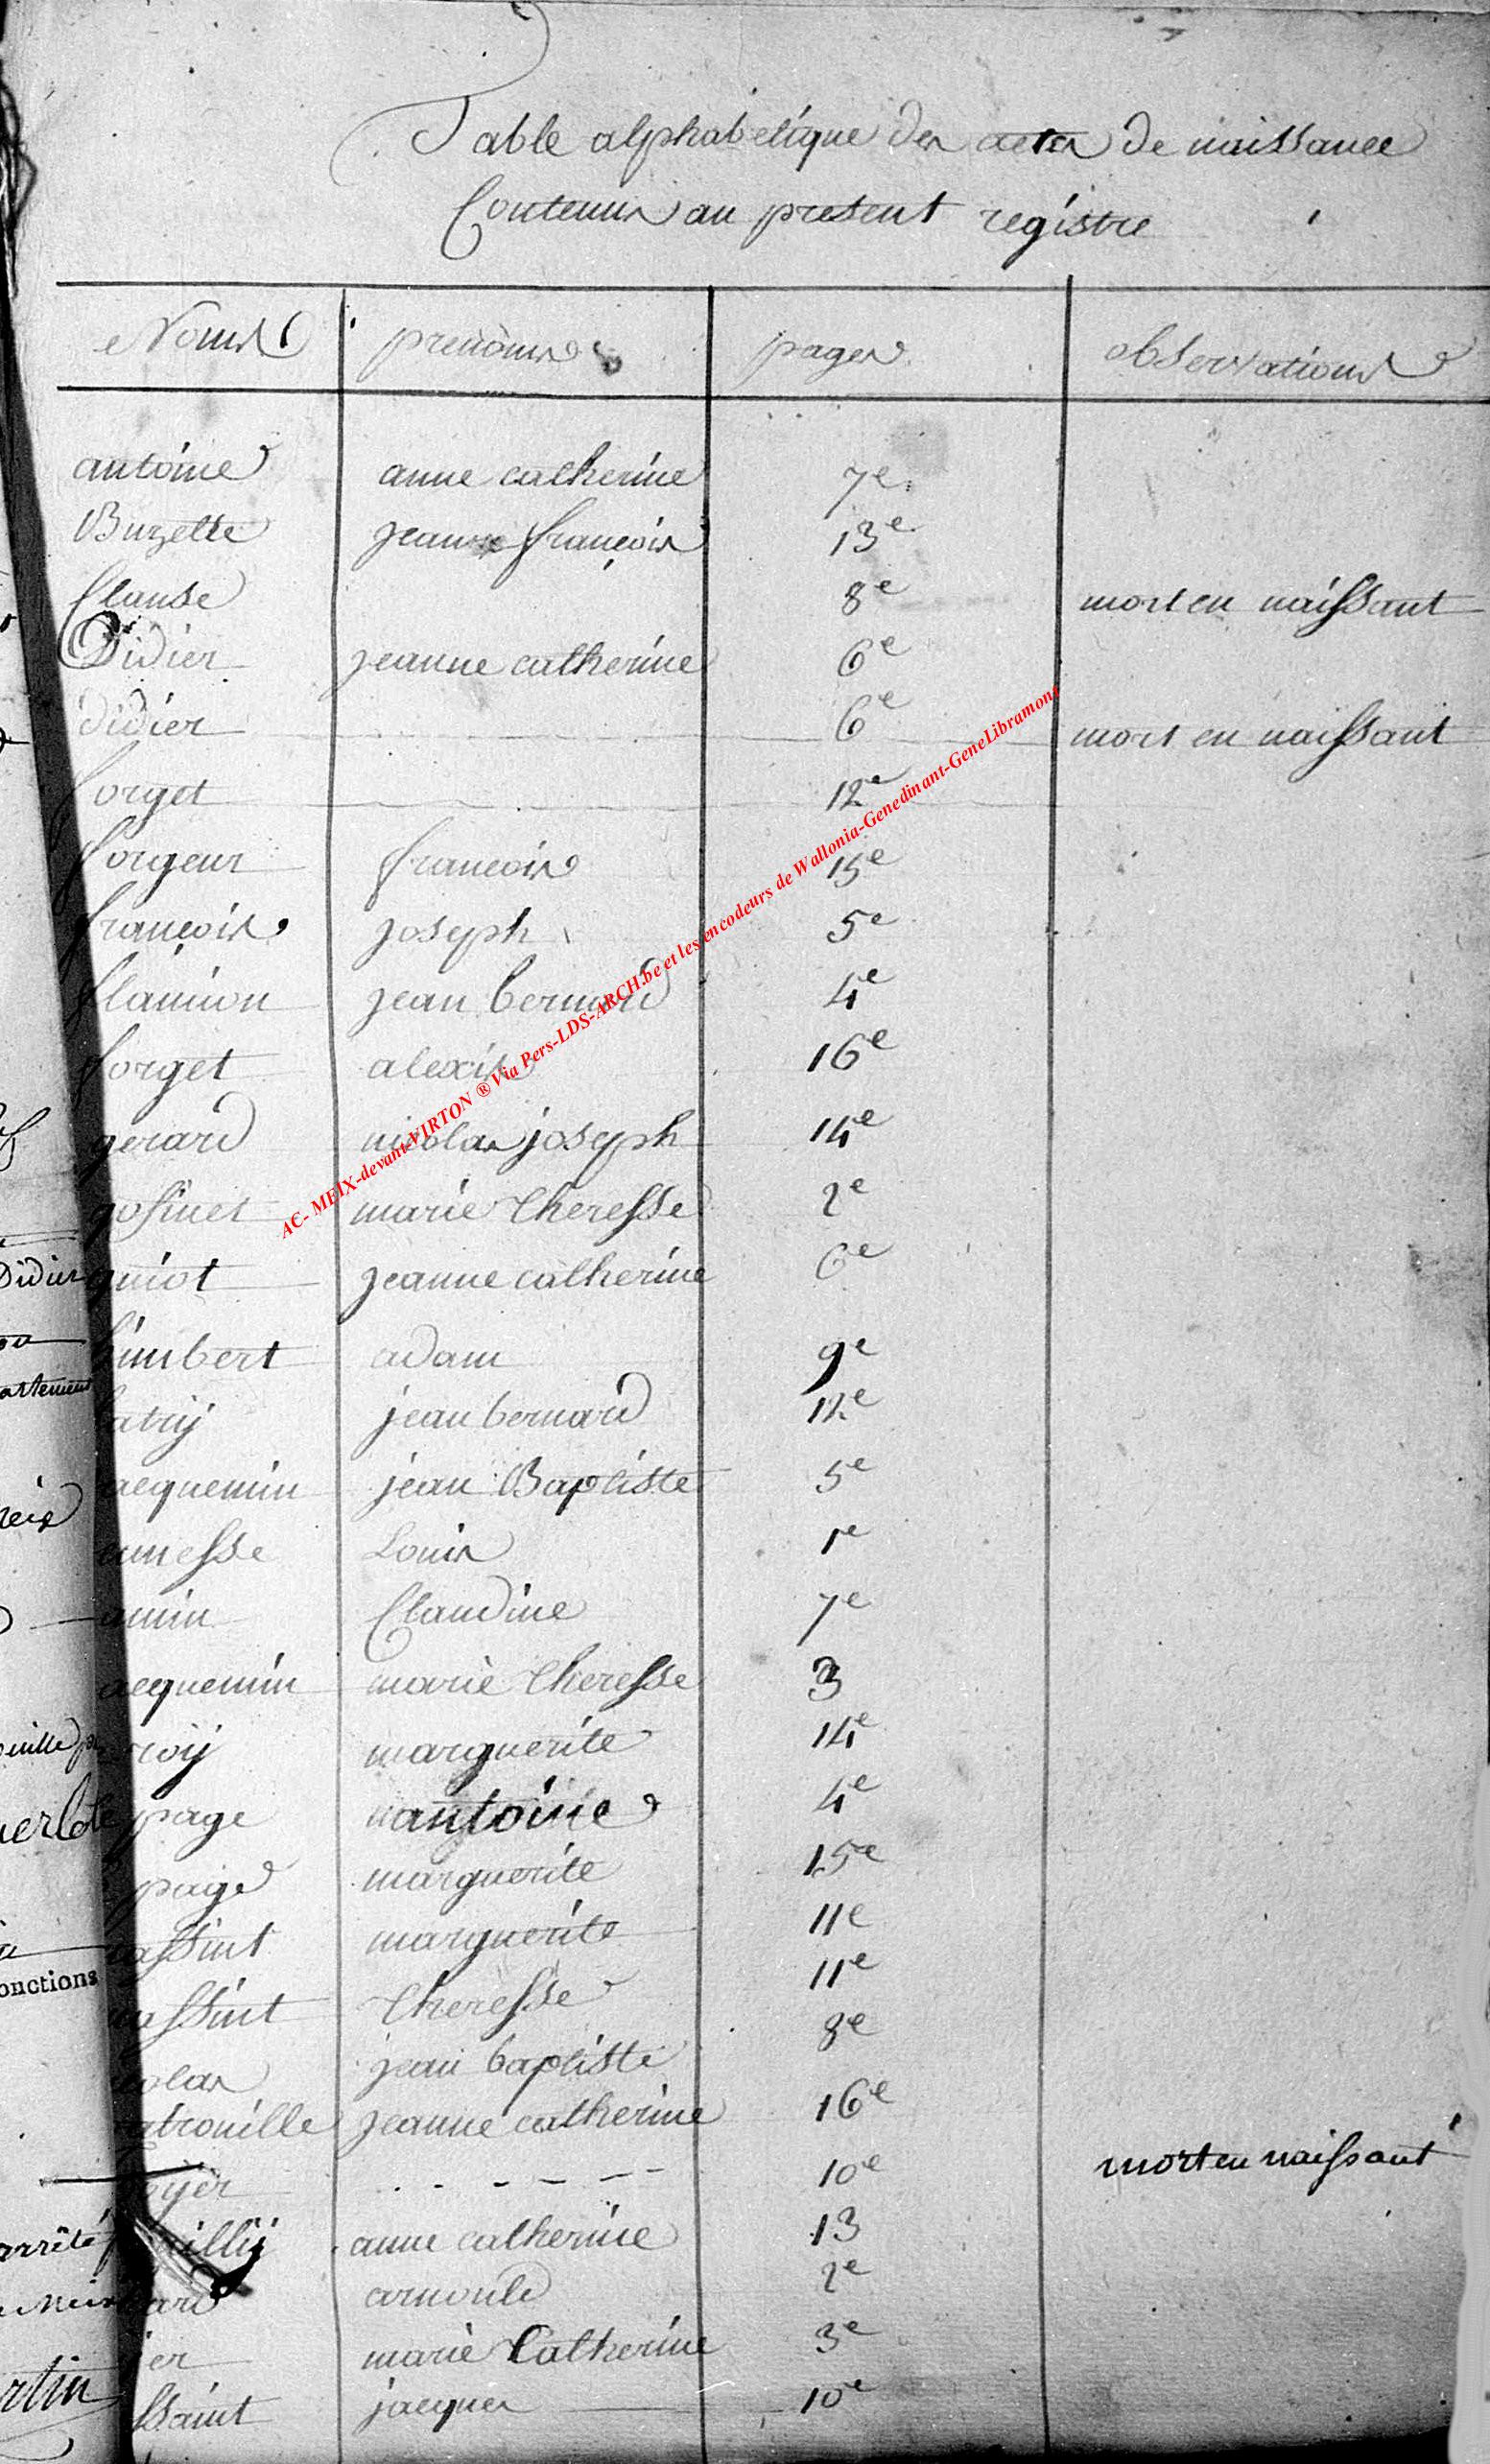 Table alphabetique des actes de naissance
Contenus au present registre
Noms prenoms pages observations
antoine anne catherine 7e
Buzette jean françois 13e
Clause 8e mort en naissant
Didier jeanne catherine 6e
didier 6e mort en naissant
forget 12e
forgeur francois 15e
françois joseph 5e
flamion jean bernard 4e
forget alexis 16e
gerard nicolas joseph 14e
gosinet marie theresse 2e
guiot jeanne catherine 6e
himbert adam 9e
atrij jean bernard 12e
acquemin jean Baptiste 5e
Louis 1e
Claudine 7e
acquemin marie theresse 3
roij marguerite 14e
page antoine 4e
page marguerite 15e
assint marguerite 11e
assint theresse 11e
olas jean baptiste 8e
atrouille jeanne catherine 16e
oyer 10e mort en naissant
illij anne catherine 13
ard arnould 2e
ier marie Catherine 3e
ssaint jacques 10e
Didier
artement
onctions
arrêté
rtin
AC- MEIX-devant-VIRTON ® Via Pers-LDS-ARCH.be et les encodeurs de Wallonia-Genedinant-GeneLibramont